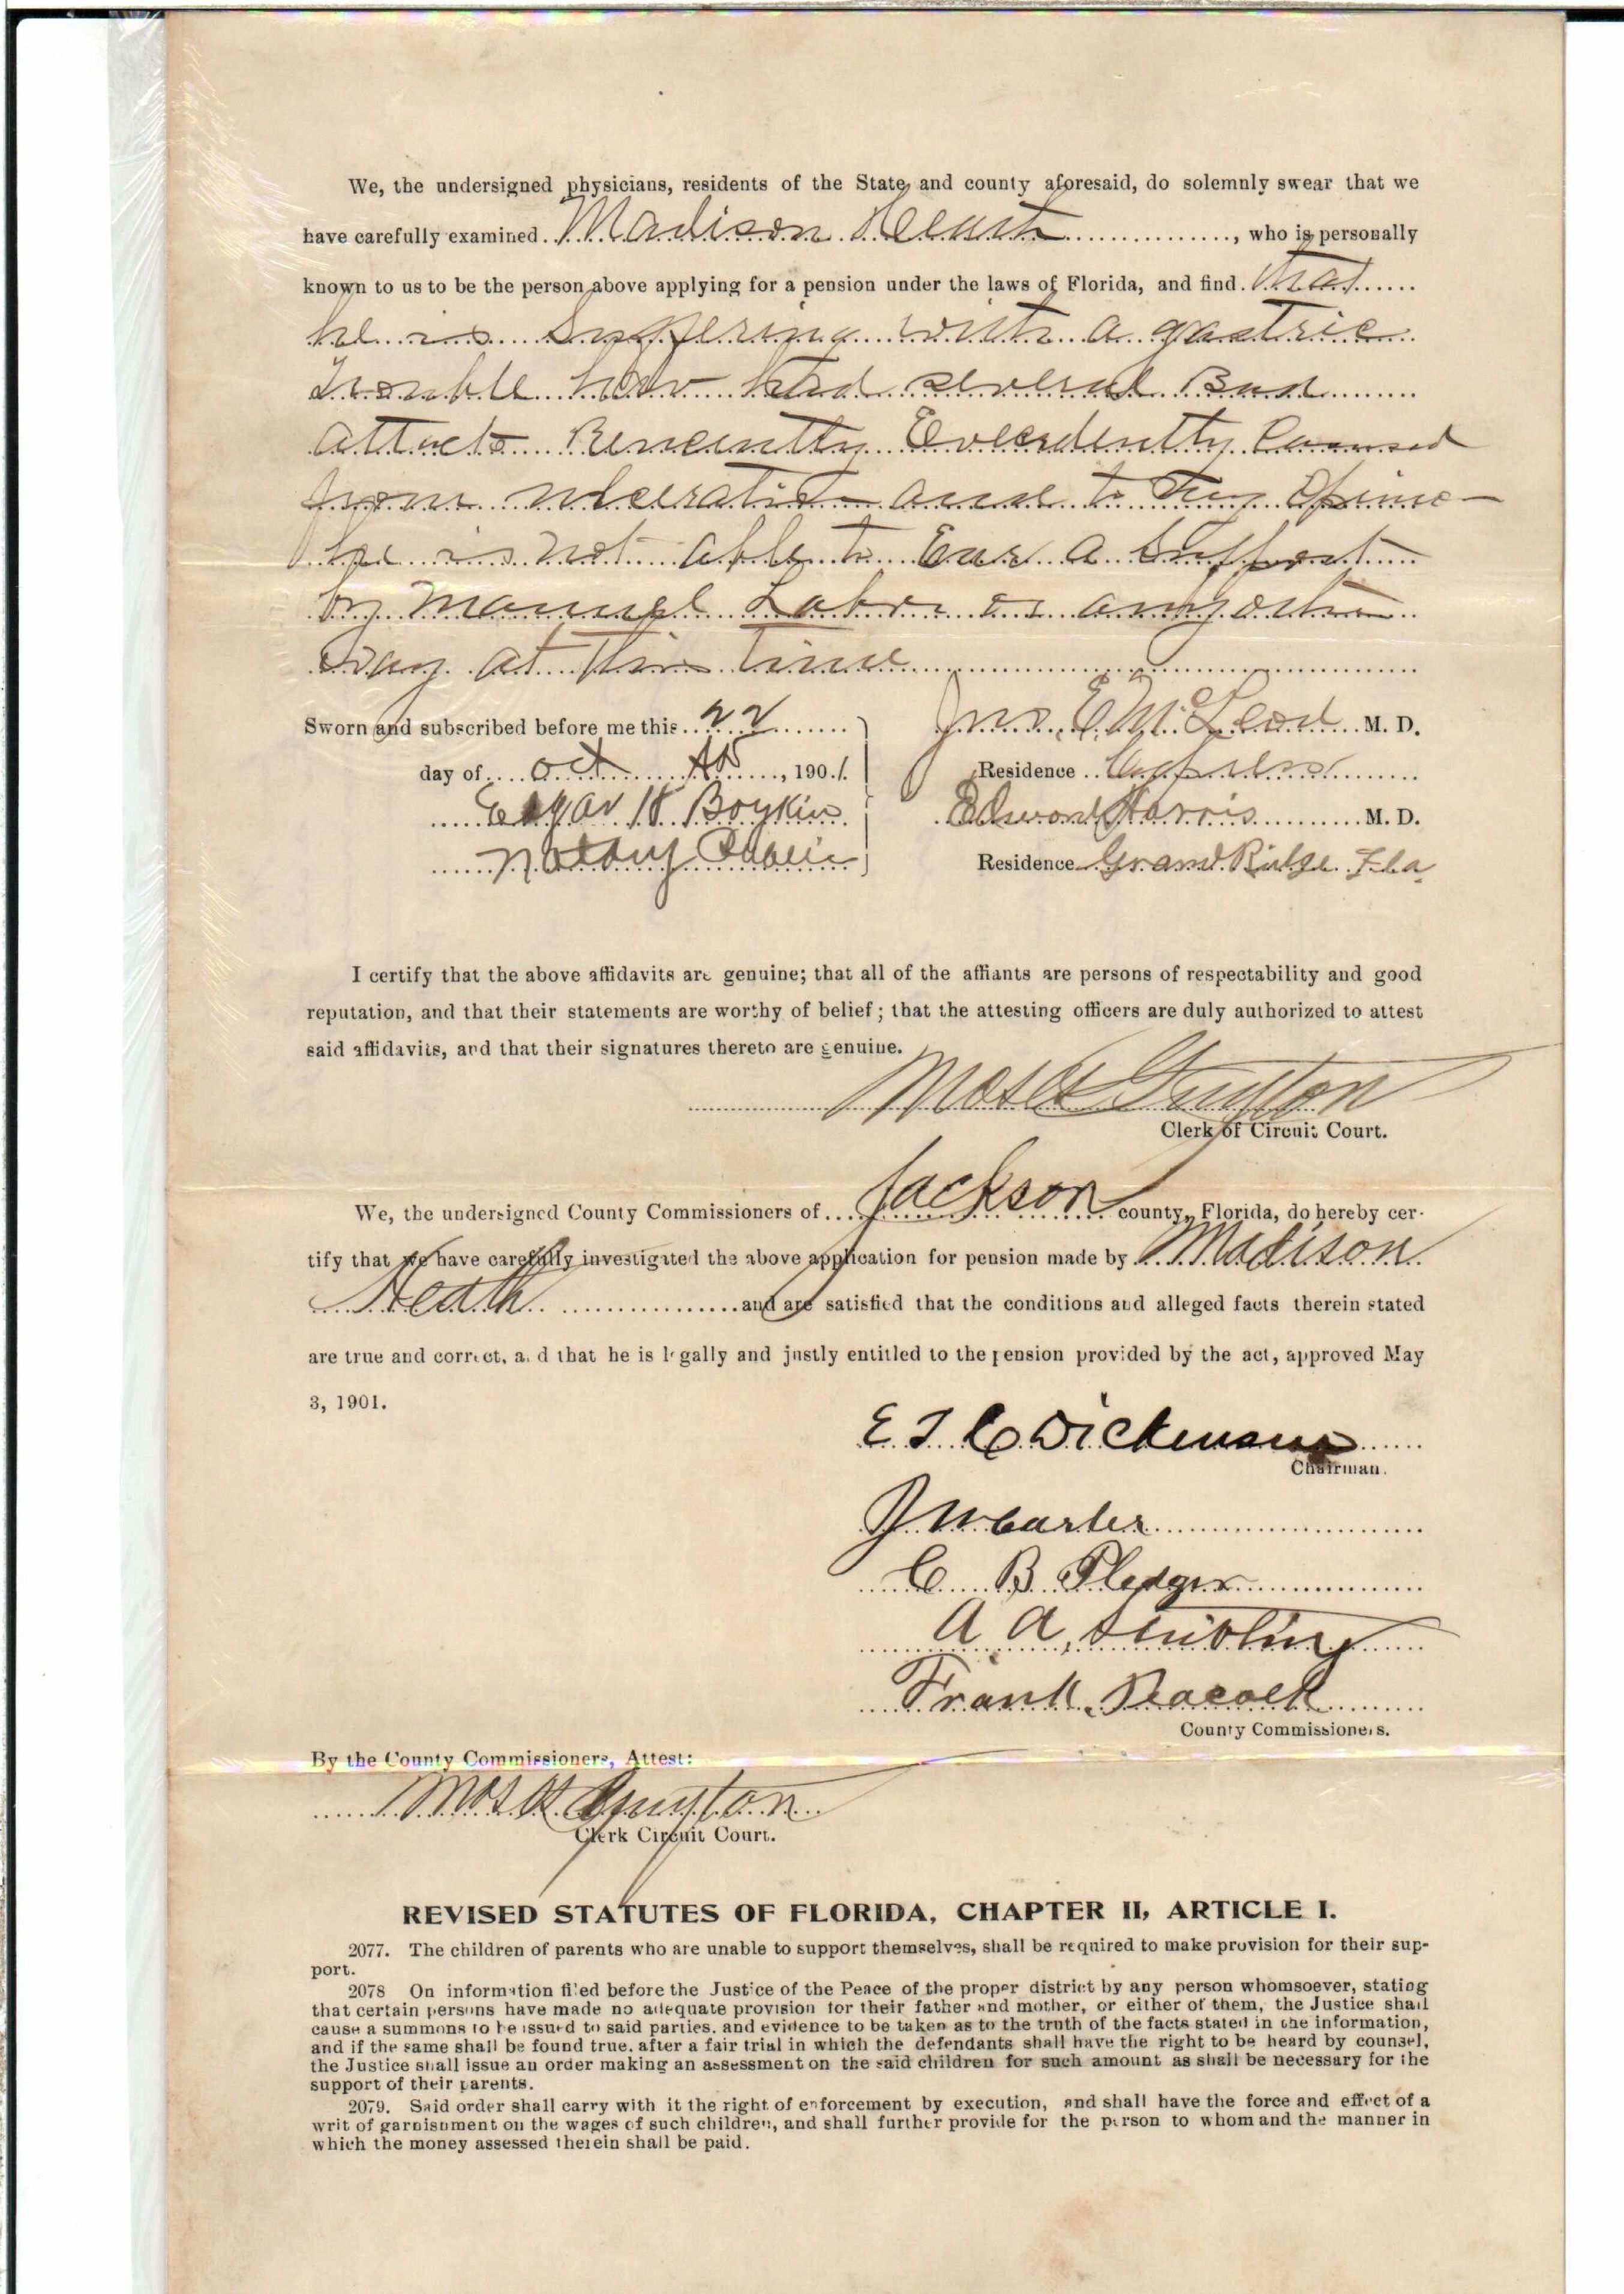 We, the undersigned physicians, residents of the State and county aforesaid, do solemnly swear that we
have carefully examined Madison Heath, who is personally
known to us to be the person above applying for a pension under the laws of Florida, and find that
he is suffering with a gastric
Trouble has had several Bad
attacts Rencently Evecadently Caused
from ulceration and to my Opinio
he is not able to Ear a Support
by manuel Labor or any other
way at this time
Sworn and subscribed before me this 22
Jno. E. McLeod M. D.
day of Oct AD, 1901
Residence Cypress
Edgar H Boykin
Edward Harris M. D.
Notary Public
Residence Grand Ridge Fla
I certify that the above affidavits are genuine; that all of the affiants are persons of respectability and good
reputation, and that their statements are worthy of belief; that the attesting officers are duly authorized to attest
said affidavits, and that their signatures thereto are genuine.
Moses Guyton
Clerk of Circuit Court.
We, the undersigned County Commissioners of Jackson county, Florida, do hereby cer-
tify that we have carefully investigated the above application for pension made by Madison
Heath and are satisfied that the conditions and alleged facts therein stated
are true and correct, and that he is legally and justly entitled to the pension provided by the act, approved May
3, 1901.
E T C Dickenson
Chairman.
J W Carter
C B Pledger
A A Stribling
Frank Peacock
County Commissioners.
By the County Commissioners, Attest:
Moses Guyton
Clerk Circuit Court.
REVISED STATUTES OF FLORIDA, CHAPTER II, ARTICLE I.
2077. The children of parents who are unable to support themselves, shall be required to make provision for their sup-
port.
2078 On information filed before the Justice of the Peace of the proper district by any person whomsoever, stating
that certain persons have made no adequate provision for their father and mother, or either of them, the Justice shall
cause a summons to be issued to said parties, and evidence to be taken as to the truth of the facts stated in the information,
and if the same shall be found true, after a fair trial in which the defendants shall have the right to be heard by counsel,
the Justice shall issue an order making an assessment on the said children for such amount as shall be necessary for the
support of their parents.
2079. Said order shall carry with it the right of enforcement by execution, and shall have the force and effect of a
writ of garnishment on the wages of such children, and shall further provide for the person to whom and the manner in
which the money assessed therein shall be paid.